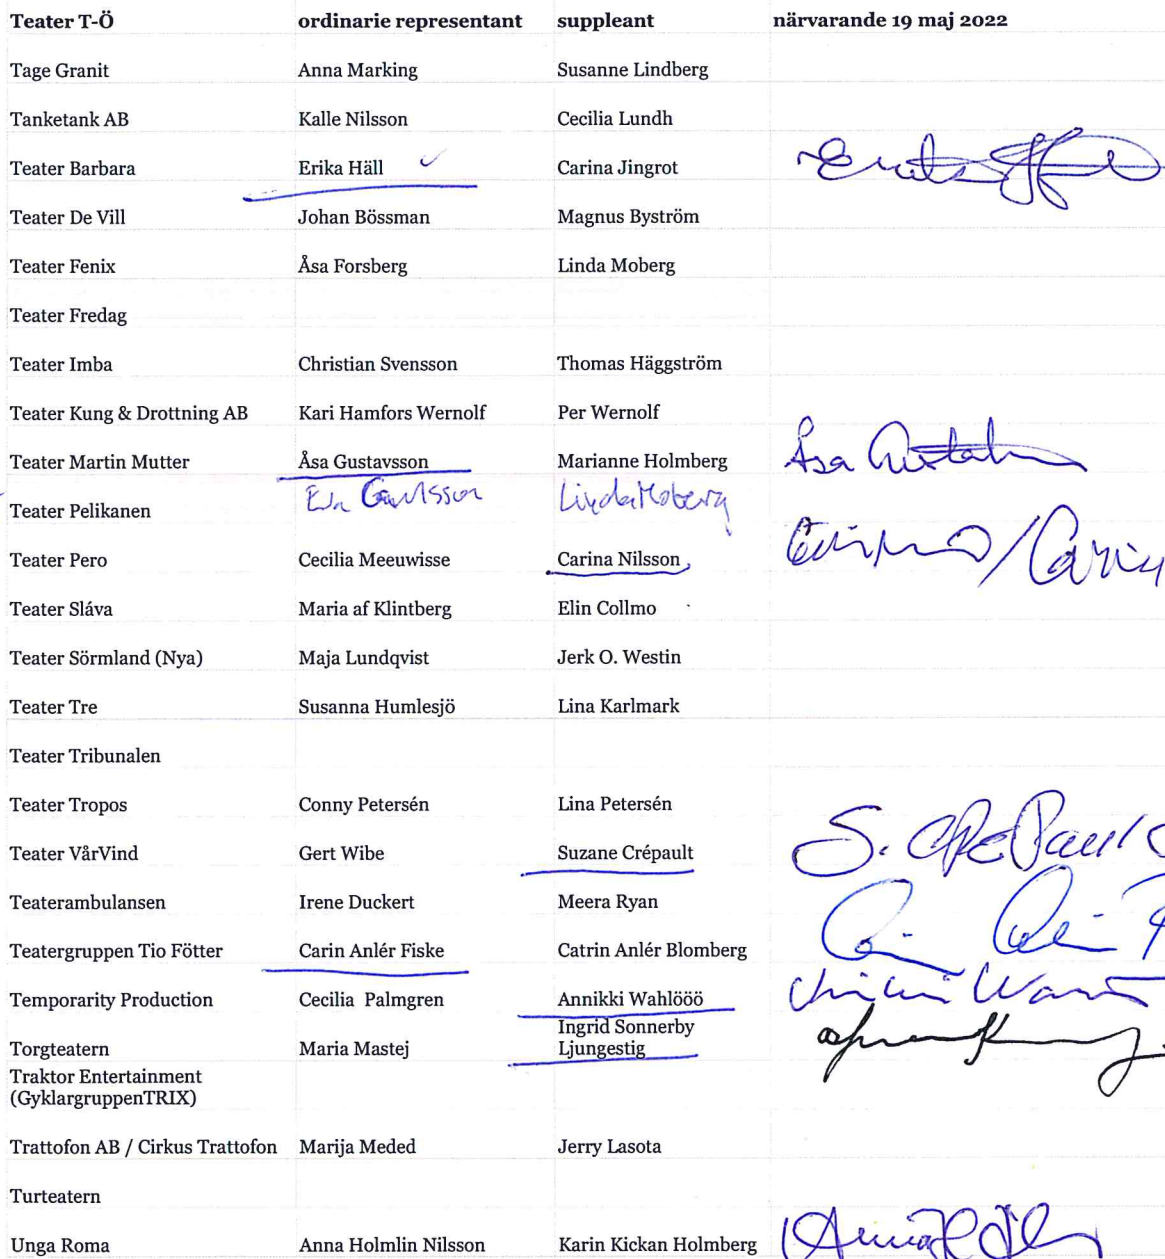 Teater T-Ö ordinarie representant suppleant närvarande 19 maj 2022
Tage Granit Anna Marking Susanne Lindberg
Tanketank AB Kalle Nilsson Cecilia Lundh
Teater Barbara Erika Häll Carina Jingrot
Teater De Vill Johan Bössman Magnus Byström
Teater Fenix Åsa Forsberg Linda Moberg
Teater Fredag
Teater Imba Christian Svensson Thomas Häggström
Teater Kung & Drottning AB Kari Hamfors Wernolf Per Wernolf
Teater Martin Mutter Åsa Gustavsson Marianne Holmberg Åsa
Teater Pelikanen Linda Moberg
Teater Pero Cecilia Meeuwisse Carina Nilsson
Teater Sláva Maria af Klintberg Elin Collmo
Teater Sörmland (Nya) Maja Lundqvist Jerk O. Westin
Teater Tre Susanna Humlesjö Lina Karlmark
Teater Tribunalen
Teater Tropos Conny Petersén Lina Petersén
Teater VårVind Gert Wibe Suzane Crépault
Teaterambulansen Irene Duckert Meera Ryan
Teatergruppen Tio Fötter Carin Anlér Fiske Catrin Anlér Blomberg
Temporarity Production Cecilia Palmgren Annikki Wahlööö
Ingrid Sonnerby
Torgteatern Maria Mastej Ljungestig
Traktor Entertainment
(GyklargruppenTRIX)
Trattofon AB / Cirkus Trattofon Marija Meded Jerry Lasota
Turteatern
Unga Roma Anna Holmlin Nilsson Karin Kickan Holmberg